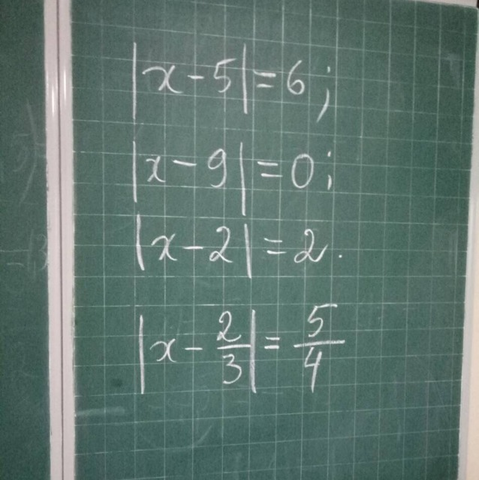 |x-5|=6;
|x-9|=0;
|x-2|=2.
|x-2/3|=5/4